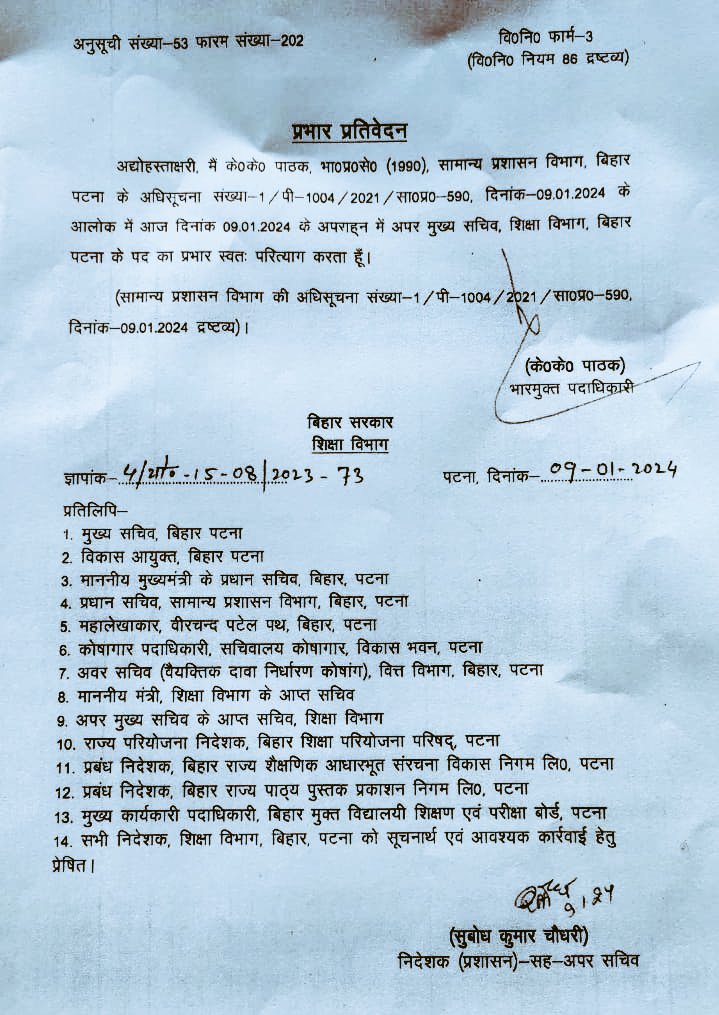 अनुसूची संख्या–53 फारम संख्या–202
वि0नि0 फार्म–3
(वि0नि0 नियम 86 द्रष्टव्य)
प्रभार प्रतिवेदन
अद्योहस्ताक्षरी, मैं के0के0 पाठक, भा0प्र0से0 (1990), सामान्य प्रशासन विभाग, बिहार
पटना के अधिसूचना संख्या–1/पी–1004/2021/सा0प्र0–590, दिनांक–09.01.2024 के
आलोक में आज दिनांक 09.01.2024 के अपराह्न में अपर मुख्य सचिव, शिक्षा विभाग, बिहार
पटना के पद का प्रभार स्वतः परित्याग करता हूँ।
(सामान्य प्रशासन विभाग की अधिसूचना संख्या–1/पी–1004/2021/सा0प्र0–590,
दिनांक–09.01.2024 द्रष्टव्य)।
(के0के0 पाठक)
भारमुक्त पदाधिकारी
बिहार सरकार
शिक्षा विभाग
ज्ञापांक–4/यो0-15-08/2023-73
पटना, दिनांक–09-01-2024
प्रतिलिपि–
1. मुख्य सचिव, बिहार पटना
2. विकास आयुक्त, बिहार पटना
3. माननीय मुख्यमंत्री के प्रधान सचिव, बिहार, पटना
4. प्रधान सचिव, सामान्य प्रशासन विभाग, बिहार, पटना
5. महालेखाकार, वीरचन्द पटेल पथ, बिहार, पटना
6. कोषागार पदाधिकारी, सचिवालय कोषागार, विकास भवन, पटना
7. अवर सचिव (वैयक्तिक दावा निर्धारण कोषांग), वित्त विभाग, बिहार, पटना
8. माननीय मंत्री, शिक्षा विभाग के आप्त सचिव
9. अपर मुख्य सचिव के आप्त सचिव, शिक्षा विभाग
10. राज्य परियोजना निदेशक, बिहार शिक्षा परियोजना परिषद्, पटना
11. प्रबंध निदेशक, बिहार राज्य शैक्षणिक आधारभूत संरचना विकास निगम लि0, पटना
12. प्रबंध निदेशक, बिहार राज्य पाठ्य पुस्तक प्रकाशन निगम लि0, पटना
13. मुख्य कार्यकारी पदाधिकारी, बिहार मुक्त विद्यालयी शिक्षण एवं परीक्षा बोर्ड, पटना
14. सभी निदेशक, शिक्षा विभाग, बिहार, पटना को सूचनार्थ एवं आवश्यक कार्रवाई हेतु
प्रेषित।
9.1.24
(सुबोध कुमार चौधरी)
निदेशक (प्रशासन)–सह–अपर सचिव